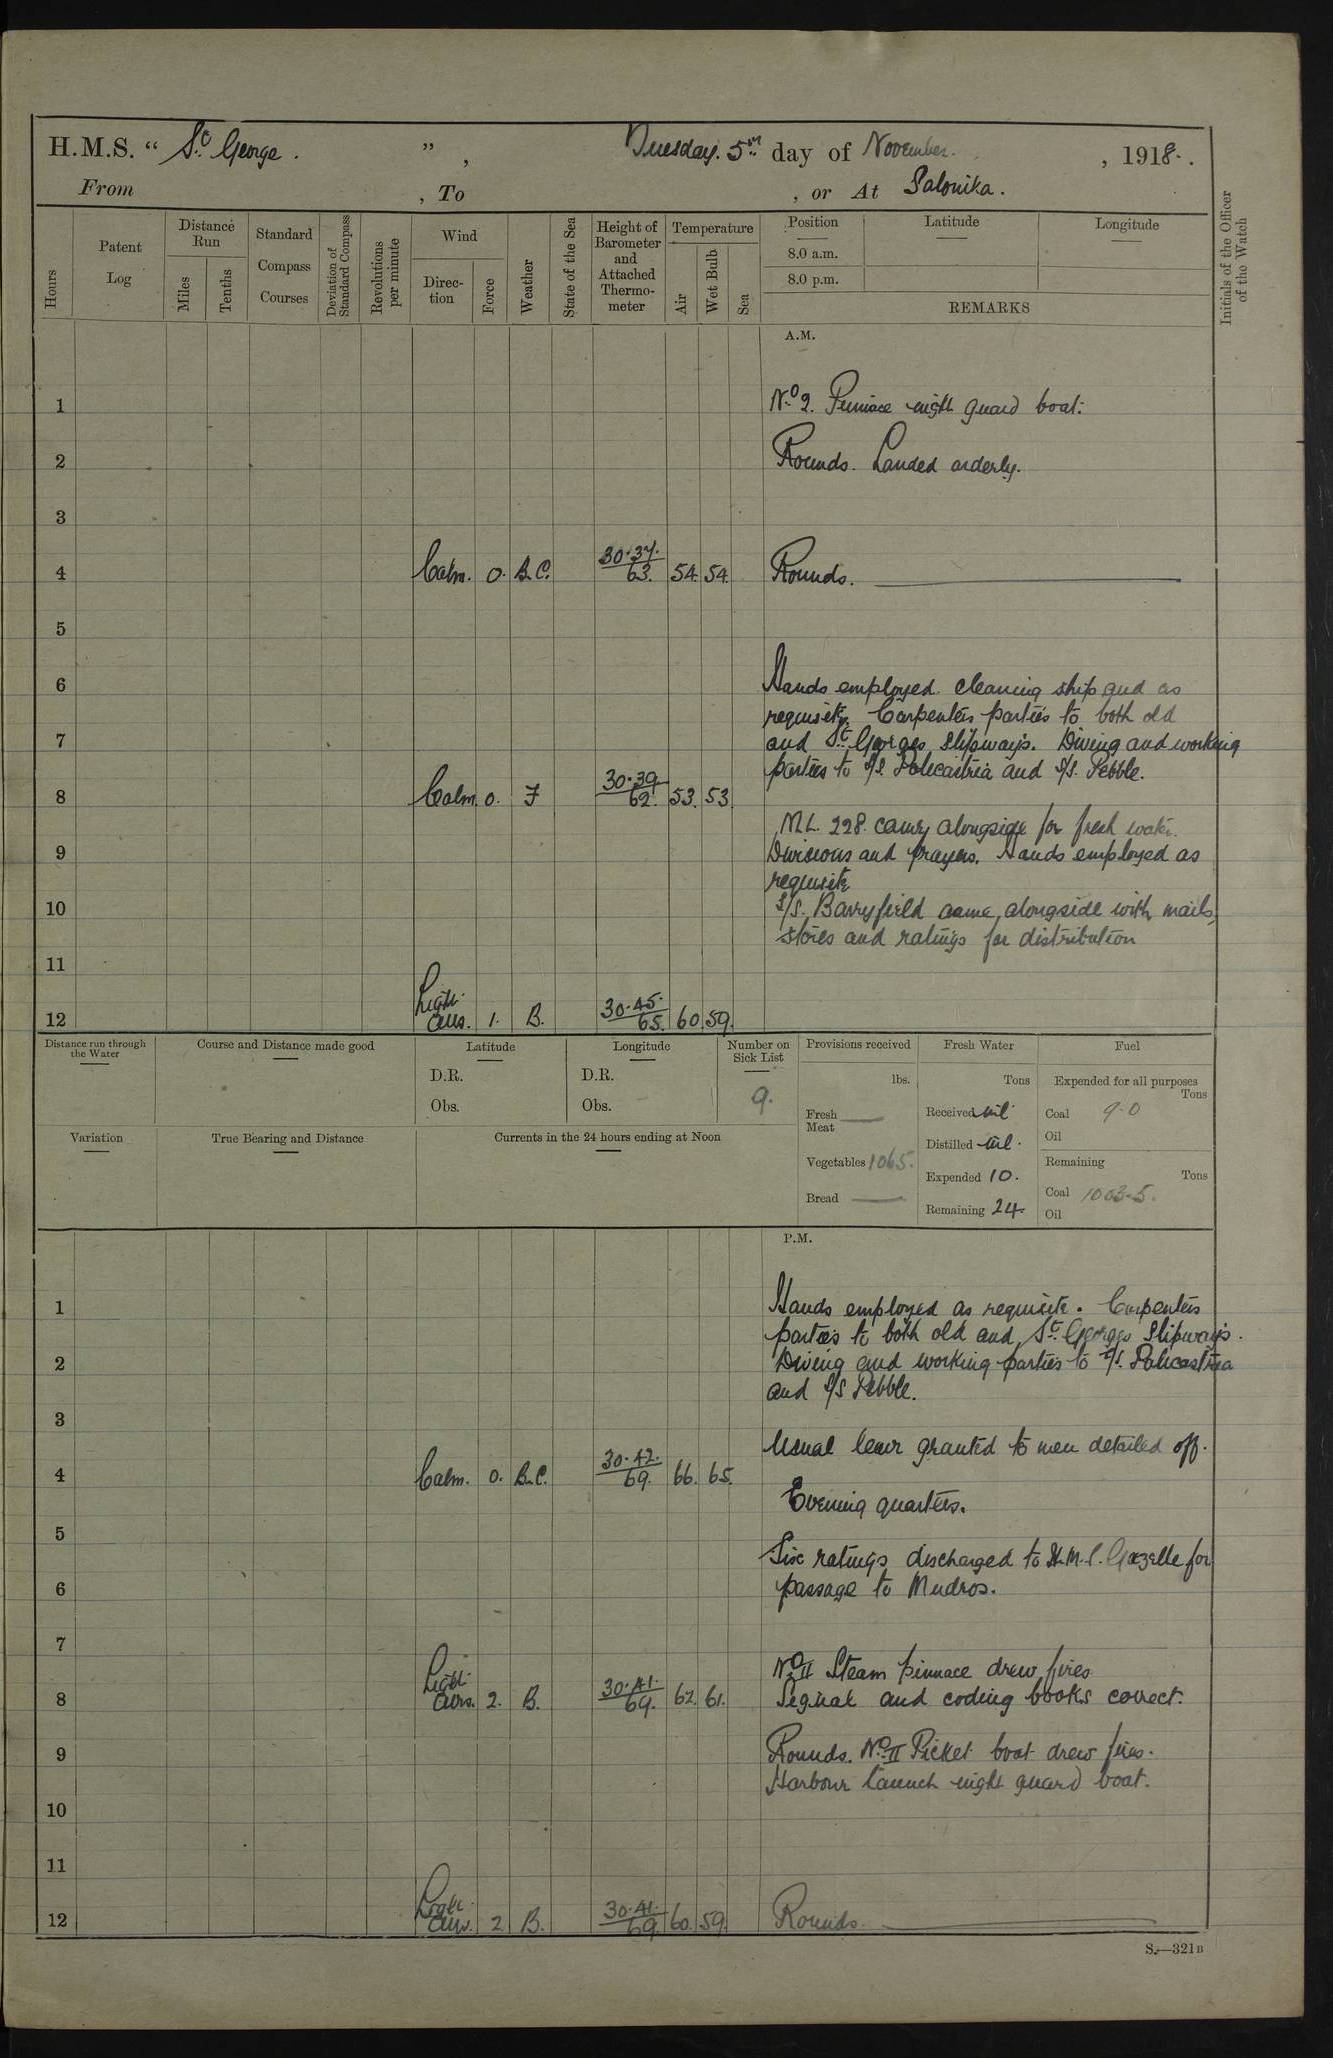 H.M.S. " St. George. " , Tuesday. 5th day of November. , 1918.
From , To , or At Salonika.
Hours
Patent Log
Distance Run
Miles
Tenths
Standard Compass Courses
Deviation of Standard Compass
Revolutions per minute
Wind
Direction
Force
Weather
State of the Sea
Height of Barometer and Attached Thermometer
Temperature
Air
Wet Bulb
Sea
Position
Latitude
Longitude
8.0 a.m.
8.0 p.m.
REMARKS
Initials of the Officer of the Watch
A.M.
1 No. 2. Pinnace night guard boat.
2 Rounds. Landed orderly.
3
4 Calm. 0. B.C. 30.37. 63. 54. 54. Rounds.
5
6 Hands employed cleaning ship and as
requisite. Carpenters parties to both old
7 and St. Georges Slipways. Diving and working
parties to S/S. Policastria and S/S. Pebble.
8 Calm. 0. F 30.39 62. 53. 53.
M.L. 228. came alongside for fresh water.
9 Divisions and prayers. Hands employed as
requisite
10 S/S. Barryfield came alongside with mails,
stores and ratings for distribution
11
12 Light airs. 1. B. 30.45. 65. 60. 59.
Distance run through the Water
Course and Distance made good
Latitude
D.R.
Obs.
Longitude
D.R.
Obs.
Number on Sick List
9.
Provisions received
lbs.
Fresh Meat
Vegetables 1065.
Bread
Fresh Water
Tons
Received nil
Distilled nil.
Expended 10.
Remaining 24.
Fuel
Expended for all purposes
Tons
Coal 9.0
Oil
Remaining
Tons
Coal 1003.5.
Oil
Variation
True Bearing and Distance
Currents in the 24 hours ending at Noon
P.M.
1 Hands employed as requisite. Carpenters
parties to both old and St. Georges Slipways.
2 Diving and working parties to S/S. Policastria
and S/S Pebble.
3
Usual leave granted to men detailed off.
4 Calm. 0. B.C. 30.42. 69. 66. 65.
Evening quarters.
5
Six ratings discharged to H.M.S. Gazelle for
6 passage to Mudros.
7
No. II Steam pinnace drew fires
8 Light airs. 2. B. 30.41. 69. 62. 61. Signal and coding books correct.
9 Rounds. No. II Picket boat drew fires.
Harbour launch night guard boat.
10
11
12 Light airs. 2 B. 30.41. 69. 60. 59. Rounds.
S.—321B